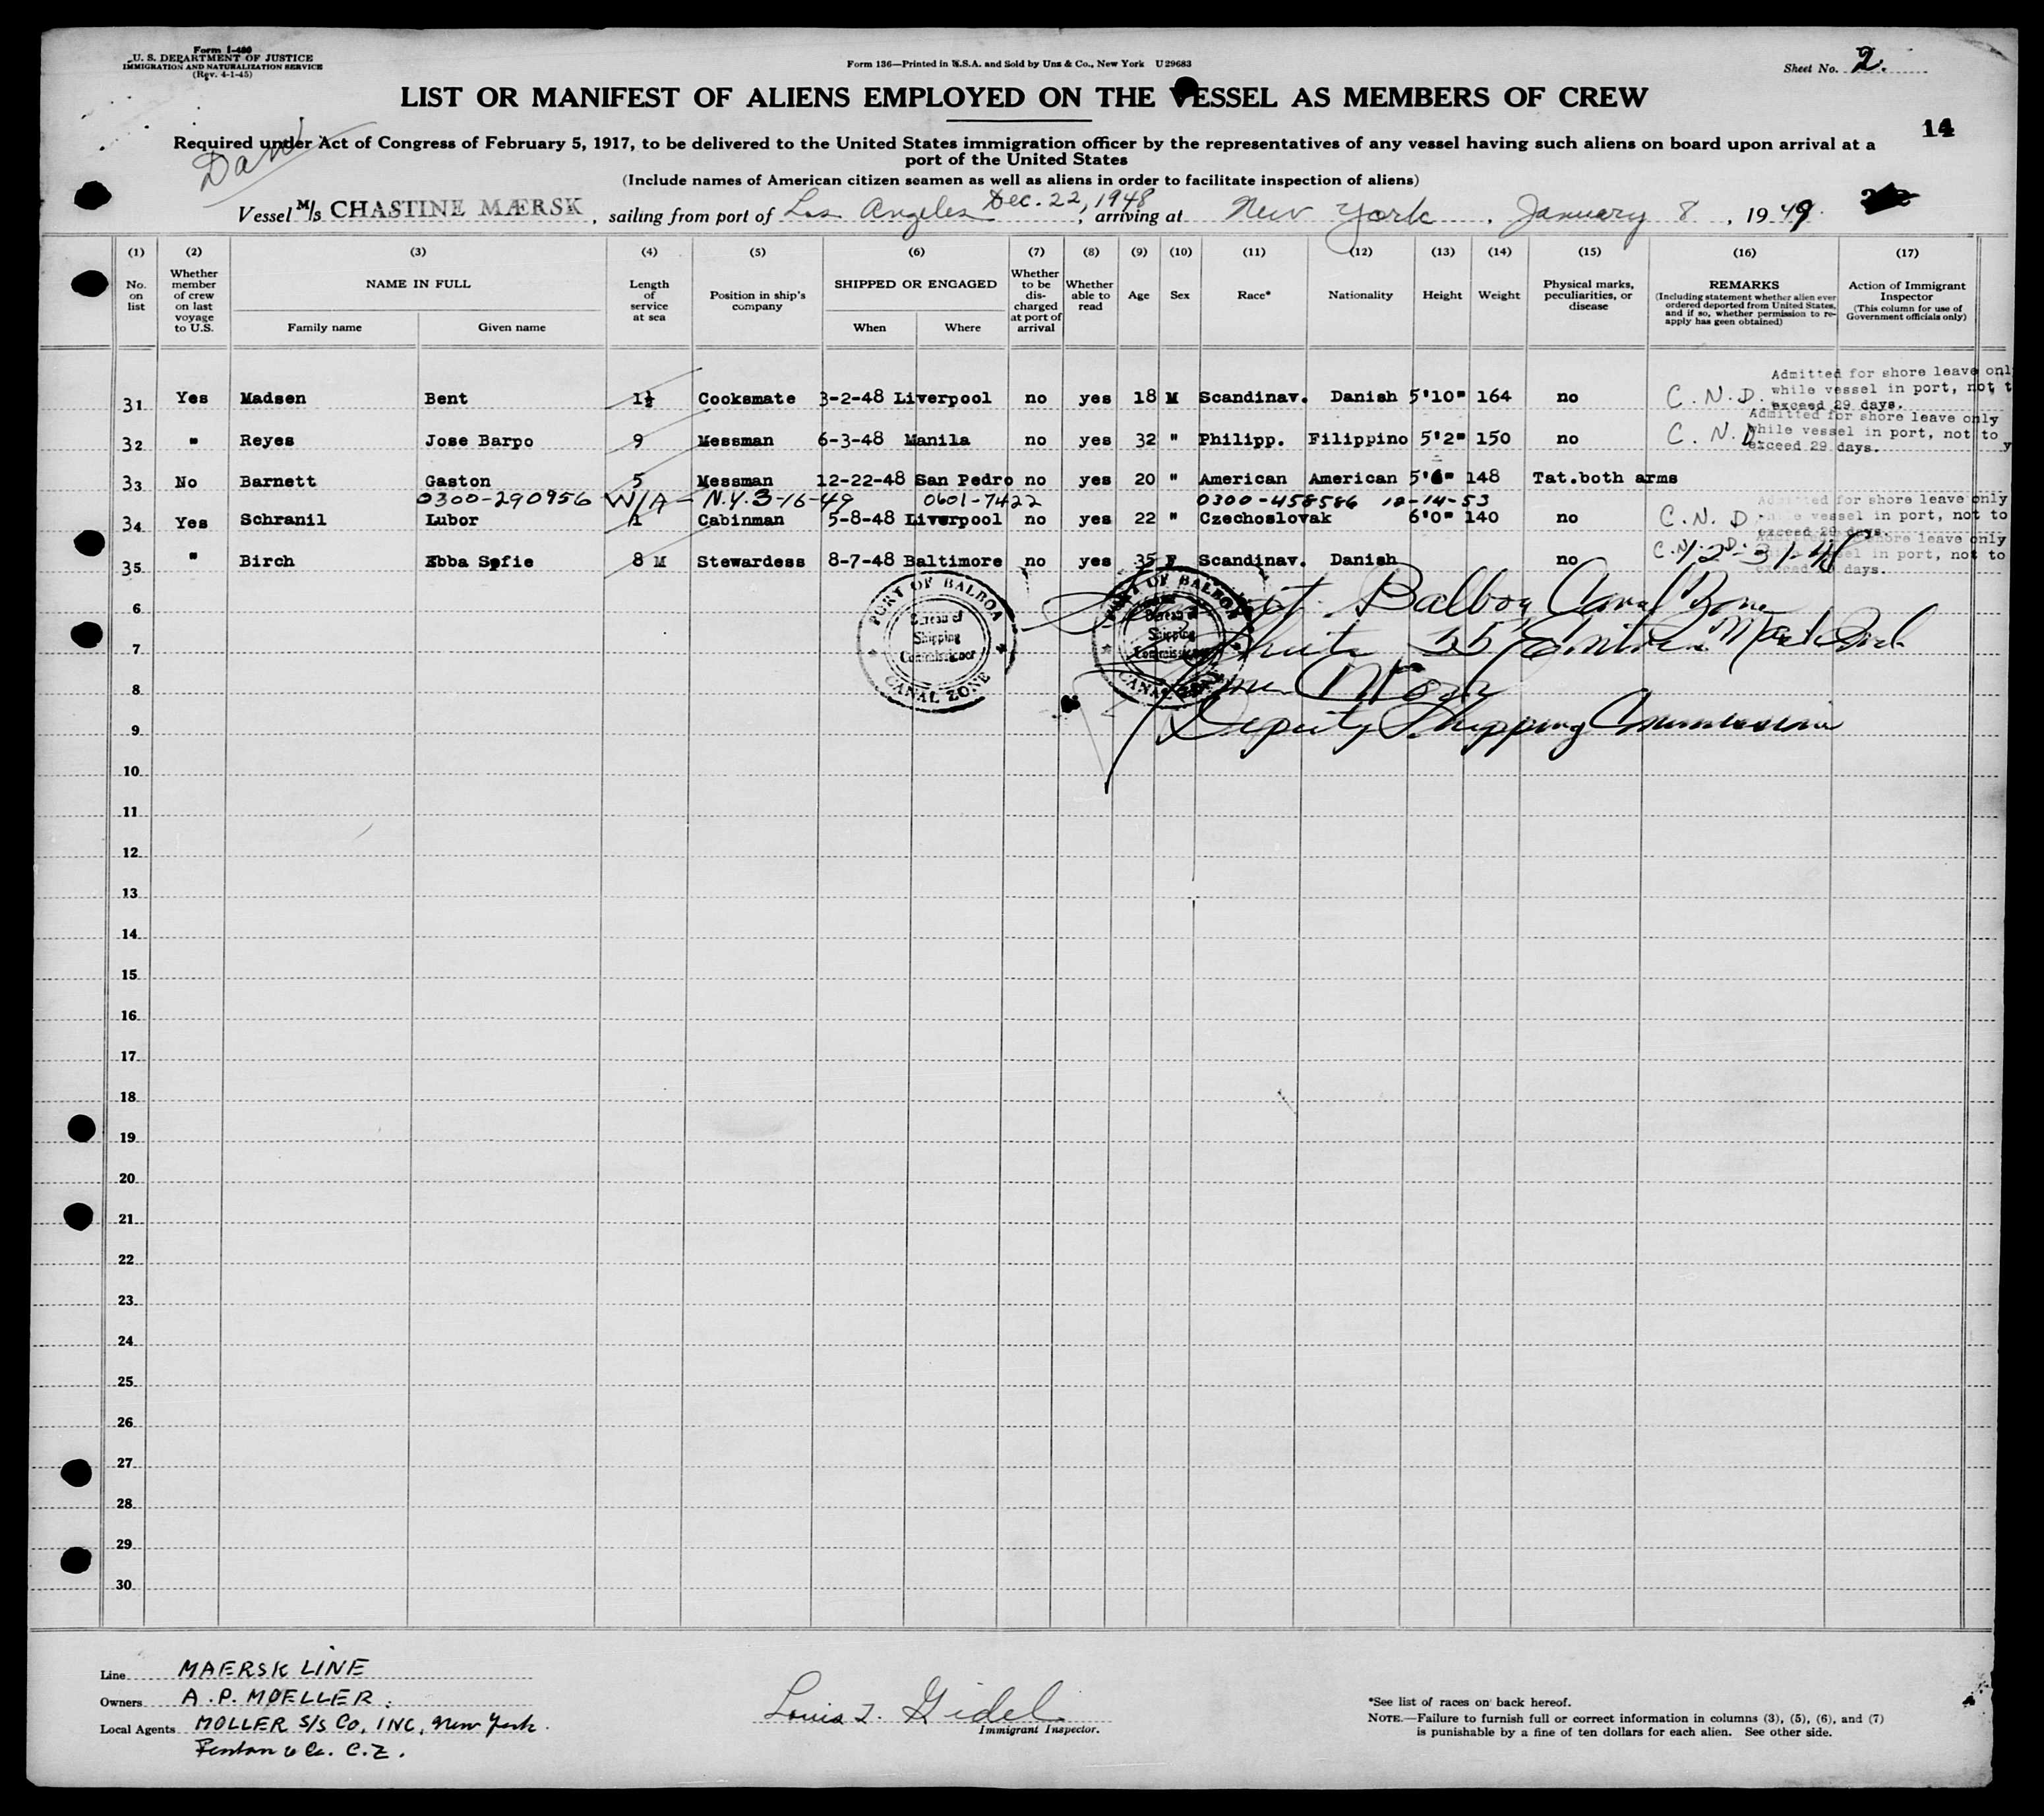 Form I-480
U. S. DEPARTMENT OF JUSTICE
IMMIGRATION AND NATURALIZATION SERVICE
(Rev. 4-1-45)
Form 136—Printed in U.S.A. and Sold by Unz & Co., New York U 29683
Sheet No. 2.
LIST OR MANIFEST OF ALIENS EMPLOYED ON THE VESSEL AS MEMBERS OF CREW
14
Required under Act of Congress of February 5, 1917, to be delivered to the United States immigration officer by the representatives of any vessel having such aliens on board upon arrival at a
port of the United States
(Include names of American citizen seamen as well as aliens in order to facilitate inspection of aliens)
Vessel M/s CHASTINE MÆRSK, sailing from port of Los Angeles Dec. 22, 1948, arriving at New York, January 8, 1949.
(1) (2) (3) (4) (5) (6) (7) (8) (9) (10) (11) (12) (13) (14) (15) (16) (17)
No. on list
Whether member of crew on last voyage to U.S.
NAME IN FULL
Family name Given name
Length of service at sea
Position in ship's company
SHIPPED OR ENGAGED
When Where
Whether to be discharged at port of arrival
Whether able to read
Age
Sex
Race*
Nationality
Height
Weight
Physical marks, peculiarities, or disease
REMARKS
(Including statement whether alien ever ordered deported from United States, and if so, whether permission to re-apply has geen obtained)
Action of Immigrant Inspector
(This column for use of Government officials only)
31 Yes Madsen Bent 1½ Cooksmate 3-2-48 Liverpool no yes 18 M Scandinav. Danish 5'10" 164 no C.N.D.
Admitted for shore leave only
while vessel in port, not t
exceed 29 days.
32 " Reyes Jose Barpo 9 Messman 6-3-48 Manila no yes 32 " Philipp. Filippino 5'2" 150 no C.N.D
Admitted for shore leave only
while vessel in port, not to
exceed 29 days.
33 No Barnett Gaston 5 Messman 12-22-48 San Pedro no yes 20 " American American 5'6" 148 Tat.both arms
0300-290956 W/A - N.Y. 3-16-49 0601-7422 0300-458586 12-14-53
34 Yes Schranil Lubor 1 Cabinman 5-8-48 Liverpool no yes 22 " Czechoslovak 6'0" 140 no C.N.D.
Admitted for shore leave only
while vessel in port, not to
exceed 29 days.
35 " Birch Ebba Sofie 8 M Stewardess 8-7-48 Baltimore no yes 35 F Scandinav. Danish no C.N.D. 12-31-48
shore leave only
vessel in port, not to
exceed days.
PORT OF BALBOA
Bureau of
Shipping
Commissioner
CANAL ZONE
PORT OF BALBOA
Bureau of
Shipping
Commissioner
CANAL ZONE
Balboa Canal Zone
35
Deputy Shipping Commissioner
6
7
8
9
10
11
12
13
14
15
16
17
18
19
20
21
22
23
24
25
26
27
28
29
30
Line MAERSK LINE
Owners A.P. MOELLER.
Local Agents MOLLER S/S CO, INC, New York.
Fenton & Co. C.Z.
Louis I. Gidel
Immigrant Inspector.
*See list of races on back hereof.
NOTE.—Failure to furnish full or correct information in columns (3), (5), (6), and (7)
is punishable by a fine of ten dollars for each alien. See other side.